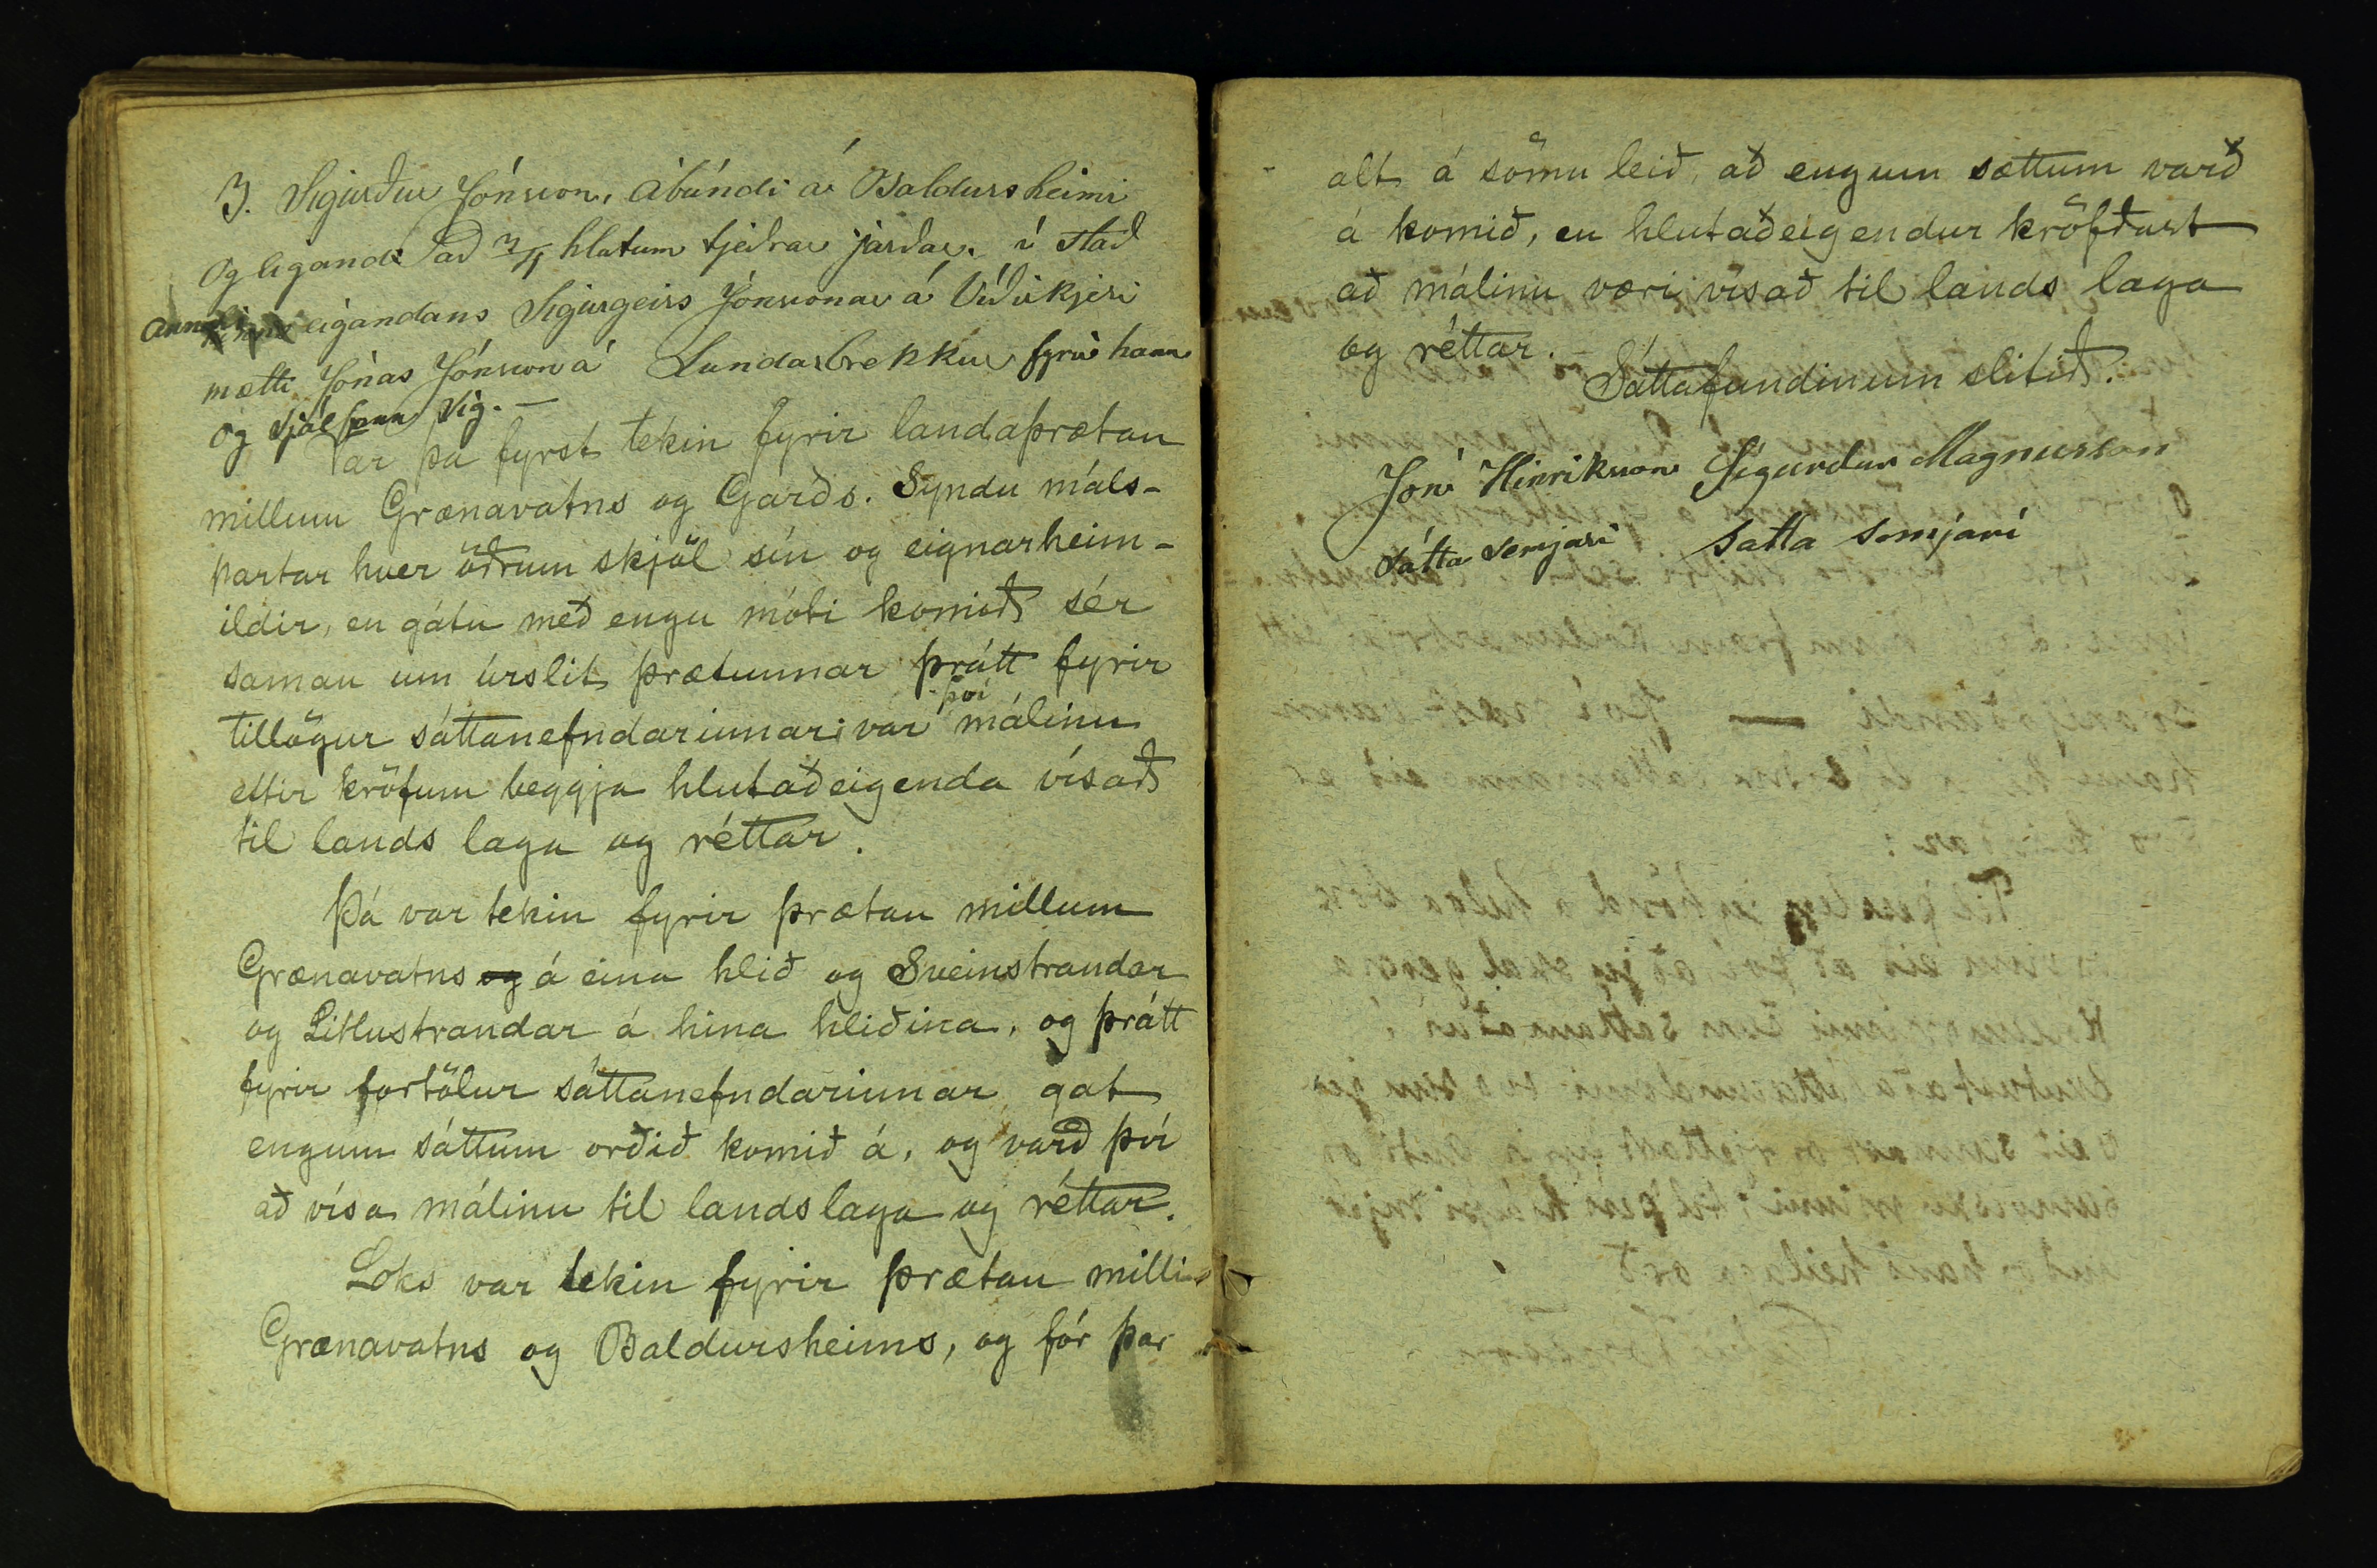 3. Sigurður Jónsson, Ábúndi á Baldursheimi
og eigandi að 3/4 hlutum tjeðrar jarðar. í stað
eigandans Sigurgeirs Jónssonar á Víðikjeri
mætti Jónas Jónsson á Lundarbrekku fyrir hann
og sjálfann sig. —
Var þá fyrst tekin fyrir landaþrætan
millum Grænavatns og Garðs. Syndu máls-
partar hver öðrum skjöl sín og eignarheim-
ildir, en gátu með engu móti komið sér
saman um úrslit þrætunnar þrátt fyrir
tillögur sáttanefndarinnar; var því málinu
eftir kröfum beggja hlutaðeigenda vísað
til lands laga og réttar.
Þá var tekin fyrir þrætan millum
Grænavatns og á eina hlið og Sveinstrandar
og Litlustrandar á hina hliðina, og þrátt
fyrir fortölur sáttanefndarinnar gat
engum sáttum orðið komið á, og varð því
að vísa málinu til landslaga og réttar.
Loks var tekin fyrir þrætan milli
Grænavatns og Baldursheims, og fór þar
alt á sömu leið, að engum sættum varð
á komið, en hlutaðeigendur kröfðust
að málinu væri vísað til lands laga
og réttar.
Sáttafundinum slitið.
Jón Hinriksson Sigurdur Magnusson
Sátta semjari Satta semjari